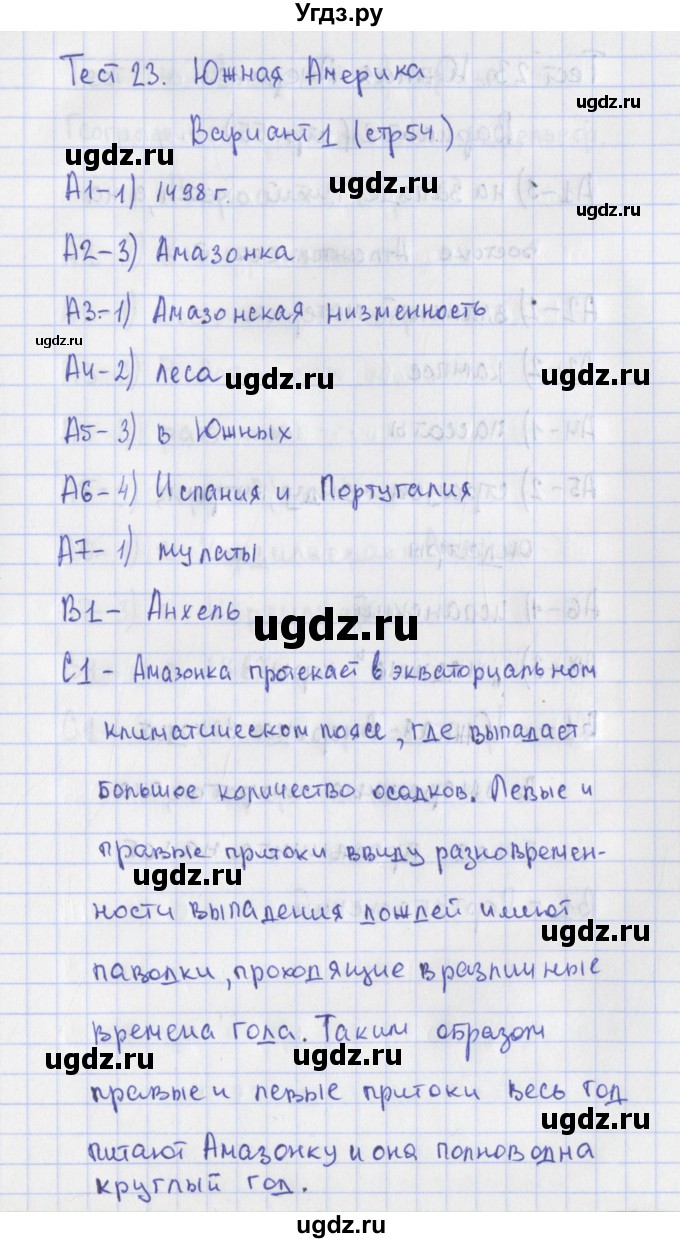 Угдз.ру
Тест 23. Южная Америка
ugdz.ru
Вариант 1 (стр54.)
ugdz.ru
ugdz.ru
А1-1) 1498 г.
ugdz.ru
А2-3) Амазонка
А3-1) Амазонская низменность
ugdz.ru
А4-2) леса
ugdz.ru
ugdz.ru
А5-3) в Южных
А6-4) Испания и Португалия
А7-1) мулаты
В1- Анхель
ugdz.ru
С1 - Амазонка протекает в экваториальном
климатическом поясе, где выпадает
большое количество осадков. Левые и
правые притоки ввиду разновремен-
ugdz.ru
ности выпадения дождей имеют
ugdz.ru
паводки, проходящие в различные
времена года. Таким образом
ugdz.ru
правые и левые притоки весь год
ugdz.ru
питают Амазонку и она полноводна
круглый год.
ugdz.ru